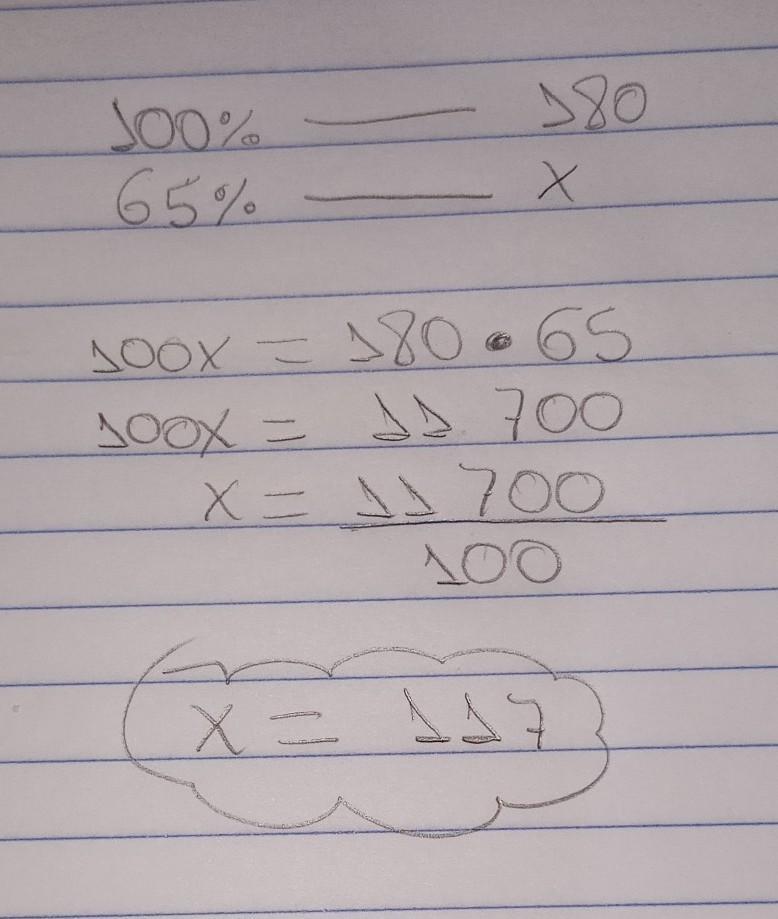 100% — 180
65% — x
100x = 180 • 65
100x = 11 700
x = 11 700
100
x = 117